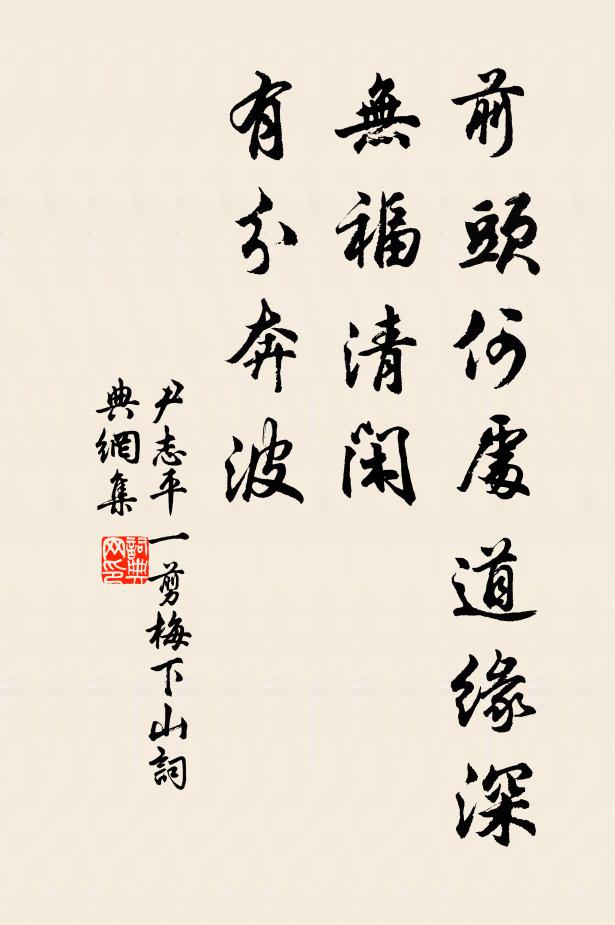 前頭何處道緣深
無福清閑
有分奔波
尹志平一剪梅下山詞
典網集
詞典网印